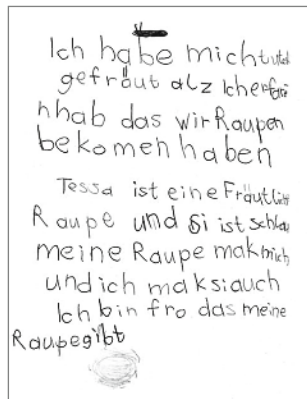 Ich habe mich tutal
gefräut alz Icherfare
nhab das wir Raupen
bekomen haben
Tessa ist eine Fräutlich
Raupe und si ist schlau
meine Raupe mak mich
und ich mak si auch
Ich bin fro das meine
Raupe gibt